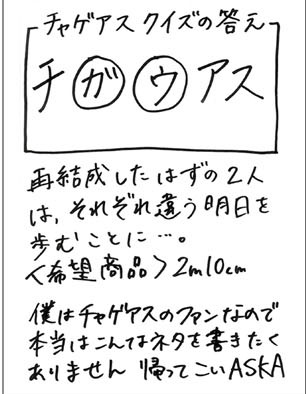 チャゲアスクイズの答え
チガウアス
再結成したはずの2人
は、それぞれ違う明日を
歩むことに…。
<希望商品> 2m10cm
僕はチャゲアスのファンなので
本当はこんなネタを書きたく
ありません 帰ってこいASKA